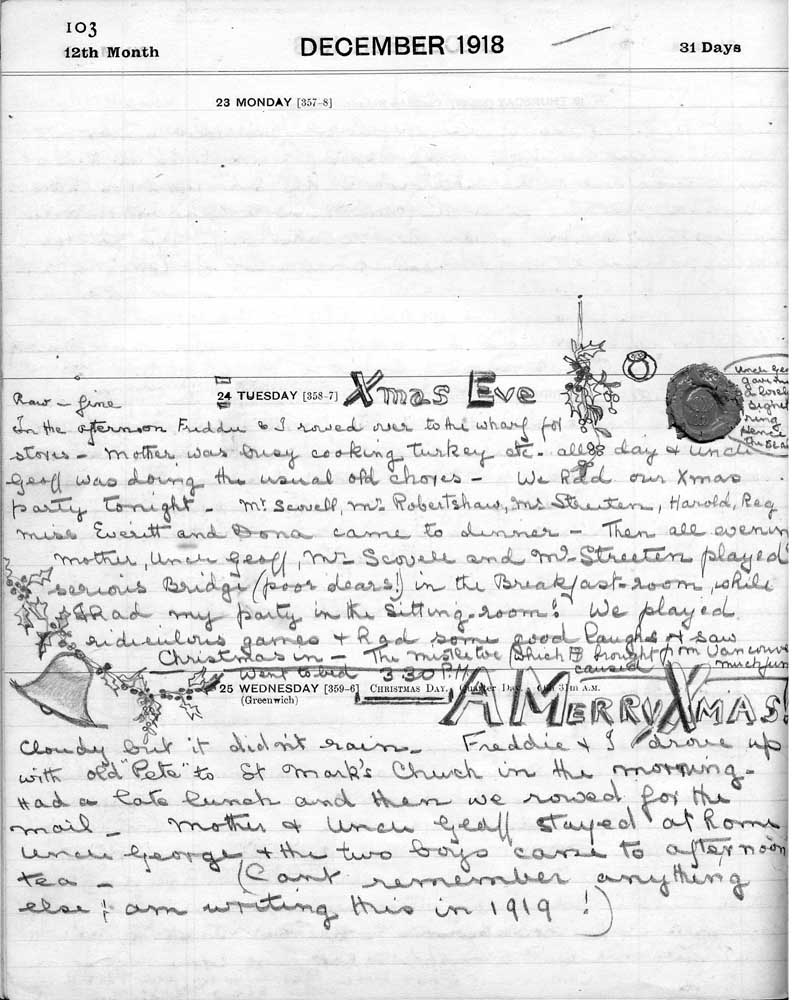 103
12th Month
DECEMBER 1918
31 Days
23 MONDAY [357-8]
24 TUESDAY [358-7] Xmas Eve
Uncle Geo
gave me
a lovely
signet
ring
Hence
the seal
Raw - fine
In the afternoon Freddie & I rowed over to the wharf for
stores - Mother was busy cooking turkey etc. all day & Uncle
Geoff was doing the usual old chores - We had our Xmas
party tonight - Mr Scovell, Mr Robertshaw, Mr Streeten, Harold, Reg
Miss Everitt and Dona came to dinner - Then all evenin
Mother, Uncle Geoff, Mr Scovell and Mr Streeten played
serious Bridge (poor dears!) in the Breakfast-room, while
I had my party in the Sitting-room! We played
ridiculous games & had some good laughs & saw
Christmas in - The mistletoe which I brought from Vancouve
caused much fun
Went to bed 3.30 P.M.
25 WEDNESDAY [359-6] CHRISTMAS DAY. Quarter Day. A.M.
(Greenwich)
A MERRY XMAS!
Cloudy but it didn't rain - Freddie & I drove up
with old "Pete" to St Mark's Church in the morning -
Had a late lunch and then we rowed for the
mail - Mother & Uncle Geoff stayed at home
Uncle George & the two boys came to afternoon
tea - (Cant remember anything
else; am writing this in 1919!)